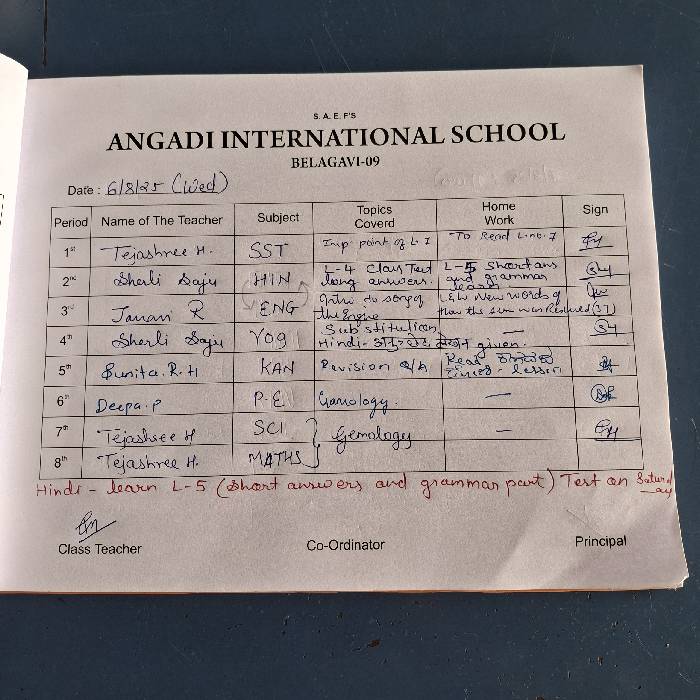 S. A. E. F'S
ANGADI INTERNATIONAL SCHOOL
BELAGAVI-09
Date : 6/8/25 (Wed)
Period Name of The Teacher Subject Topics Coverd Home Work Sign
1st Tejashree H. SST Imp. point of L. 7 To Read L.no. 7
2nd Sherli Saju HIN L-4 Class Test long answers. L-5 Short ans and grammar learn
3rd Janavi R ENG Intro to song of the Engine L.E.W New words of than the sum was Restored (37)
4th Sherli Saju Yog Substitution Hindi- अनुच्छेद given. —
5th Sunita. R. H KAN Revision Q/A Read
6th Deepa. P P.E Gemology. —
7th Tejashree H SCI Gemology —
8th Tejashree H. MATHS
Hindi - learn L-5 (Short answers and grammar part) Test on Saturday
Class Teacher Co-Ordinator Principal